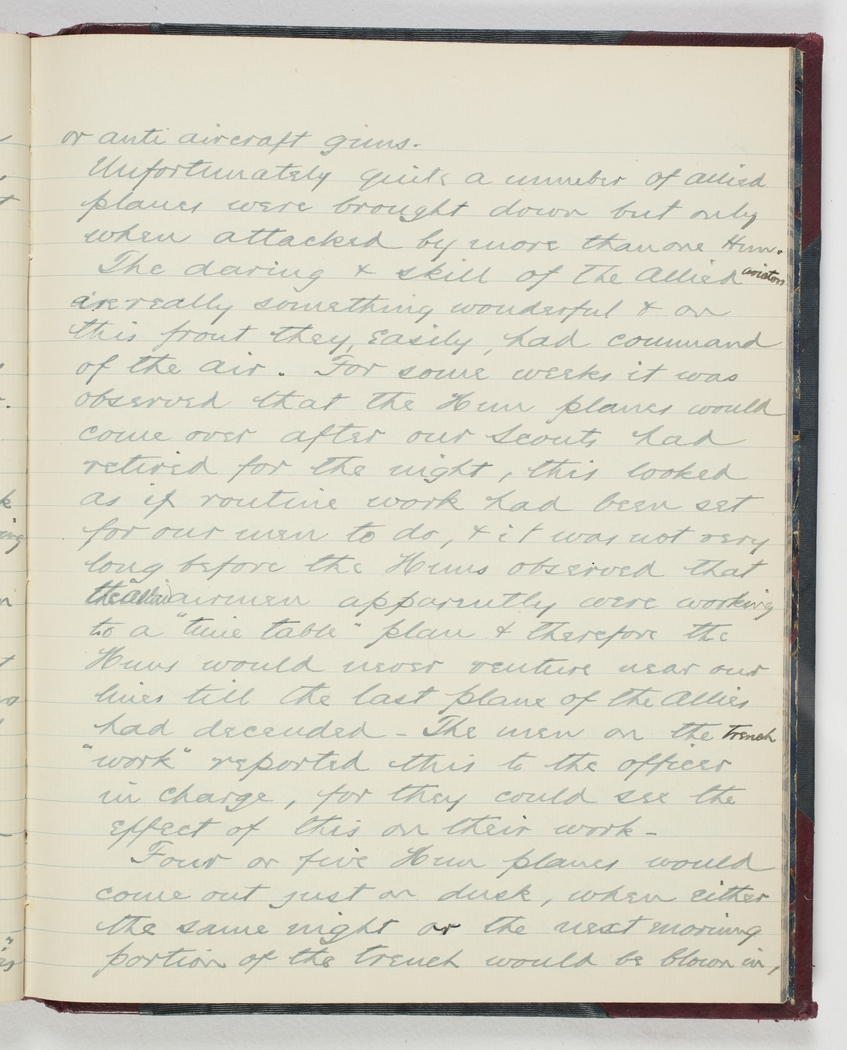 or anti aircraft guns.
Unfortunately quite a number of allied
planes were brought down but only
when attacked by more than one Hun.
The daring & skill of the Allied aviators
are really something wonderful & on
this front they, easily, had command
of the air. For some weeks it was
observed that the Hun planes would
come over after our Scouts had
retired for the night, this looked
as if routine work had been set
for our men to do, & it was not very
long before the Huns observed that
the airmen apparently were working
to a "time table" plan & therefore the
Huns would never venture near our
lines till the last plane of the Allies
had decended - The men on the trench
"work" reported this to the officer
in charge, for they could see the
effect of this on their work -
Four or five Hun planes would
come out just on dusk, when either
the same night or the next morning
portion of the trench would be blown in,